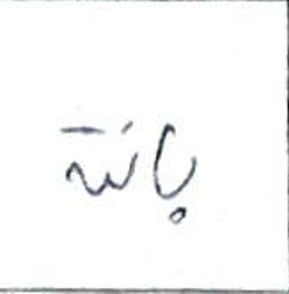 باتنة